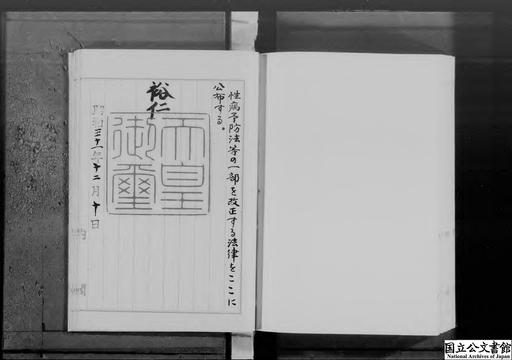 性病予防法等の一部を改正する法律をここに
公布する。
裕仁
天皇
御璽
昭和三十一年十二月十日
国立公文書館
National Archives of Japan